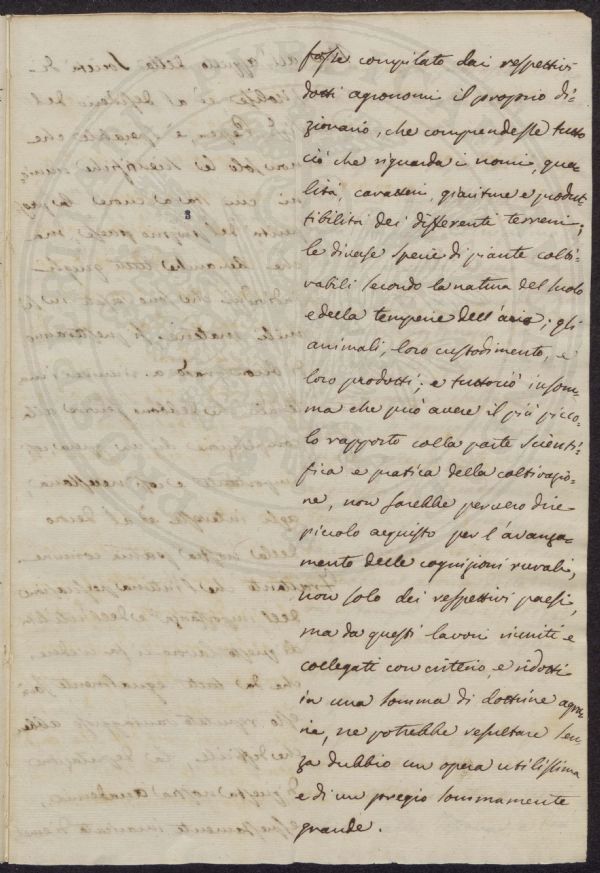 fosse compilato dai respettivi
dotti agronomi il proprio di-
zionario, che comprendesse tutto
ciò che riguarda i nomi, qua-
lità, caratteri, giaciture e produt-
tibilità dei differenti terreni;
le diverse specie di piante colti-
vabili secondo la natura del suolo
e della temperie dell'aria; gli
animali, loro custodimento, e
loro prodotti; e tuttociò insom-
ma che può avere il più picco-
lo rapporto colla parte scienti-
fica e pratica della coltivazio-
ne, non sarebbe pervero dire
piccolo acquisto per l'avanza-
mento delle cognizioni rurali,
non solo dei respettivi paesi,
ma da questi lavori riuniti e
collegati con criterio, e ridotti
in una somma di dottrine agra-
rie, ne potrebbe resultare sen-
za dubbio un opera utilissima
e di un pregio sommamente
grande.